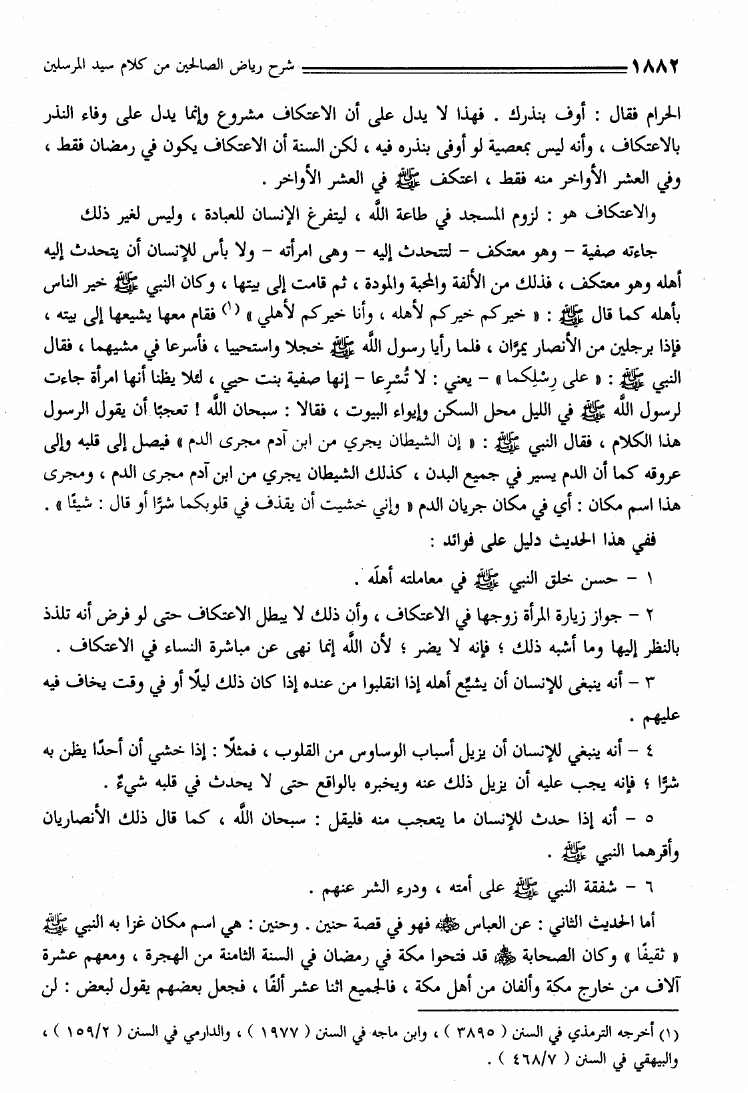 ١٨٨٢ شرح رياض الصالحين من كلام سيد المرسلين
الحرام فقال : أوف بنذرك . فهذا لا يدل على أن الاعتكاف مشروع وإنما يدل على وفاء النذر
بالاعتكاف ، وأنه ليس بمعصية لو أوفى بنذره فيه ، لكن السنة أن الاعتكاف يكون في رمضان فقط ،
وفي العشر الأواخر منه فقط ، اعتكف ﷺ في العشر الأواخر .
والاعتكاف هو : لزوم المسجد في طاعة اللَّه ، ليتفرغ الإنسان للعبادة ، وليس لغير ذلك
جاءته صفية – وهو معتكف – لتتحدث إليه – وهى امرأته – ولا بأس للإنسان أن يتحدث إليه
أهله وهو معتكف ، فذلك من الألفة والمحبة والمودة ، ثم قامت إلى بيتها ، وكان النبي ﷺ خير الناس
بأهله كما قال ﷺ : « خيركم خيركم لأهله ، وأنا خيركم لأهلي » (١) فقام معها يشيعها إلى بيته ،
فإذا برجلين من الأنصار يمرَّان ، فلما رأيا رسول اللَّه ﷺ خجلا واستحييا ، فأسرعا في مشيهما ، فقال
النبي ﷺ : « على رِسْلِكما » – يعني : لا تُسْرِعا – إنها صفية بنت حيي ، لئلا يظنا أنها امرأة جاءت
لرسول اللَّه ﷺ في الليل محل السكن وإيواء البيوت ، فقالا : سبحان اللَّه ! تعجبًا أن يقول الرسول
هذا الكلام ، فقال النبي ﷺ : « إن الشيطان يجري من ابن آدم مجرى الدم » فيصل إلى قلبه وإلى
عروقه كما أن الدم يسير في جميع البدن ، كذلك الشيطان يجري من ابن آدم مجرى الدم ، ومجرى
هذا اسم مكان : أي في مكان جريان الدم « وإني خشيت أن يقذف في قلوبكما شرًّا أو قال : شيئًا » .
ففي هذا الحديث دليل على فوائد :
١ – حسن خلق النبي ﷺ في معاملته أهلَه .
٢ – جواز زيارة المرأة زوجها في الاعتكاف ، وأن ذلك لا يبطل الاعتكاف حتى لو فرض أنه تلذذ
بالنظر إليها وما أشبه ذلك ؛ فإنه لا يضر ؛ لأن اللَّه إنما نهى عن مباشرة النساء في الاعتكاف .
٣ – أنه ينبغي للإنسان أن يشيِّع أهله إذا انقلبوا من عنده إذا كان ذلك ليلًا أو في وقت يخاف فيه
عليهم .
٤ – أنه ينبغي للإنسان أن يزيل أسباب الوساوس من القلوب ، فمثلًا : إذا خشي أن أحدًا يظن به
شرًّا ؛ فإنه يجب عليه أن يزيل ذلك عنه ويخبره بالواقع حتى لا يحدث في قلبه شيءٌ .
٥ – أنه إذا حدث للإنسان ما يتعجب منه فليقل : سبحان اللَّه ، كما قال ذلك الأنصاريان
وأقرهما النبي ﷺ .
٦ – شفقة النبي ﷺ على أمته ، ودرء الشر عنهم .
أما الحديث الثاني : عن العباس ﵁ فهو في قصة حنين . وحنين : هي اسم مكان غزا به النبي ﷺ
« ثقيفًا » وكان الصحابة ﵃ قد فتحوا مكة في رمضان في السنة الثامنة من الهجرة ، ومعهم عشرة
آلاف من خارج مكة وألفان من أهل مكة ، فالجميع اثنا عشر ألفًا ، فجعل بعضهم يقول لبعض : لن
(١) أخرجه الترمذي في السنن ( ٣٨٩٥ ) ، وابن ماجه في السنن ( ١٩٧٧ ) ، والدارمي في السنن ( ١٥٩/٢ ) ،
والبيهقي في السنن ( ٤٦٨/٧ ) .